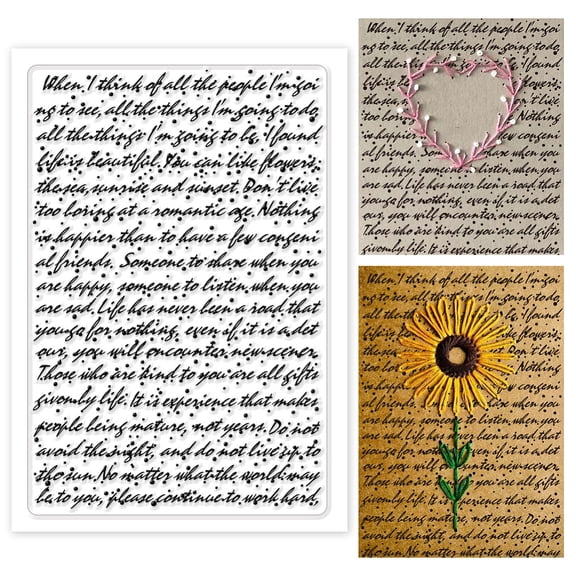 When, I think of all the people I'm goi
ng to see, all the things I'm going to do,
all the things I'm going to be, I found
life is beautiful. You can like flowers,
the sea, sunrise and sunset. Don't live
too boring at a romantic age. Nothing
is happier than to have a few congeni
al friends. Someone to share when you
are happy, someone to listen, when you
are sad. Life has never been a road that
you go for nothing, even if it is a det
our, you will encounter new scener.
Those who are kind to you are all gifts
given by life. It is experience that makes
people being mature, not years. Do not
avoid the night, and do not live up to
the sun. No matter what the world may
be to you, please continue to work hard,
When, I think of all the people I'm goi
ng to see, all the things I'm going to do,
all the found
life is flowers,
the sea, Don't live
too Nothing
is happier congeni
al friends. when you
are happy, someone to listen, when you
are sad. Life has never been a road that
you go for nothing, even if it is a det
our, you will encounter new scener.
Those who are kind to you are all gifts
given by life. It is experience that makes
When, I think of all the people I'm goi
ng to see, all the things I'm going to do,
all the things found
life is
the sea, live
too Nothing
is happier congeni
al friends. you
are happy, when you
are sad. Life has road that
you go for nothing, it is a det
our, you will new scener.
Those who are kind you are all gifts
given by life. It is experience that makes
people being mature, not years. Do not
avoid the night, and do not live up to
the sun. No matter what the world may